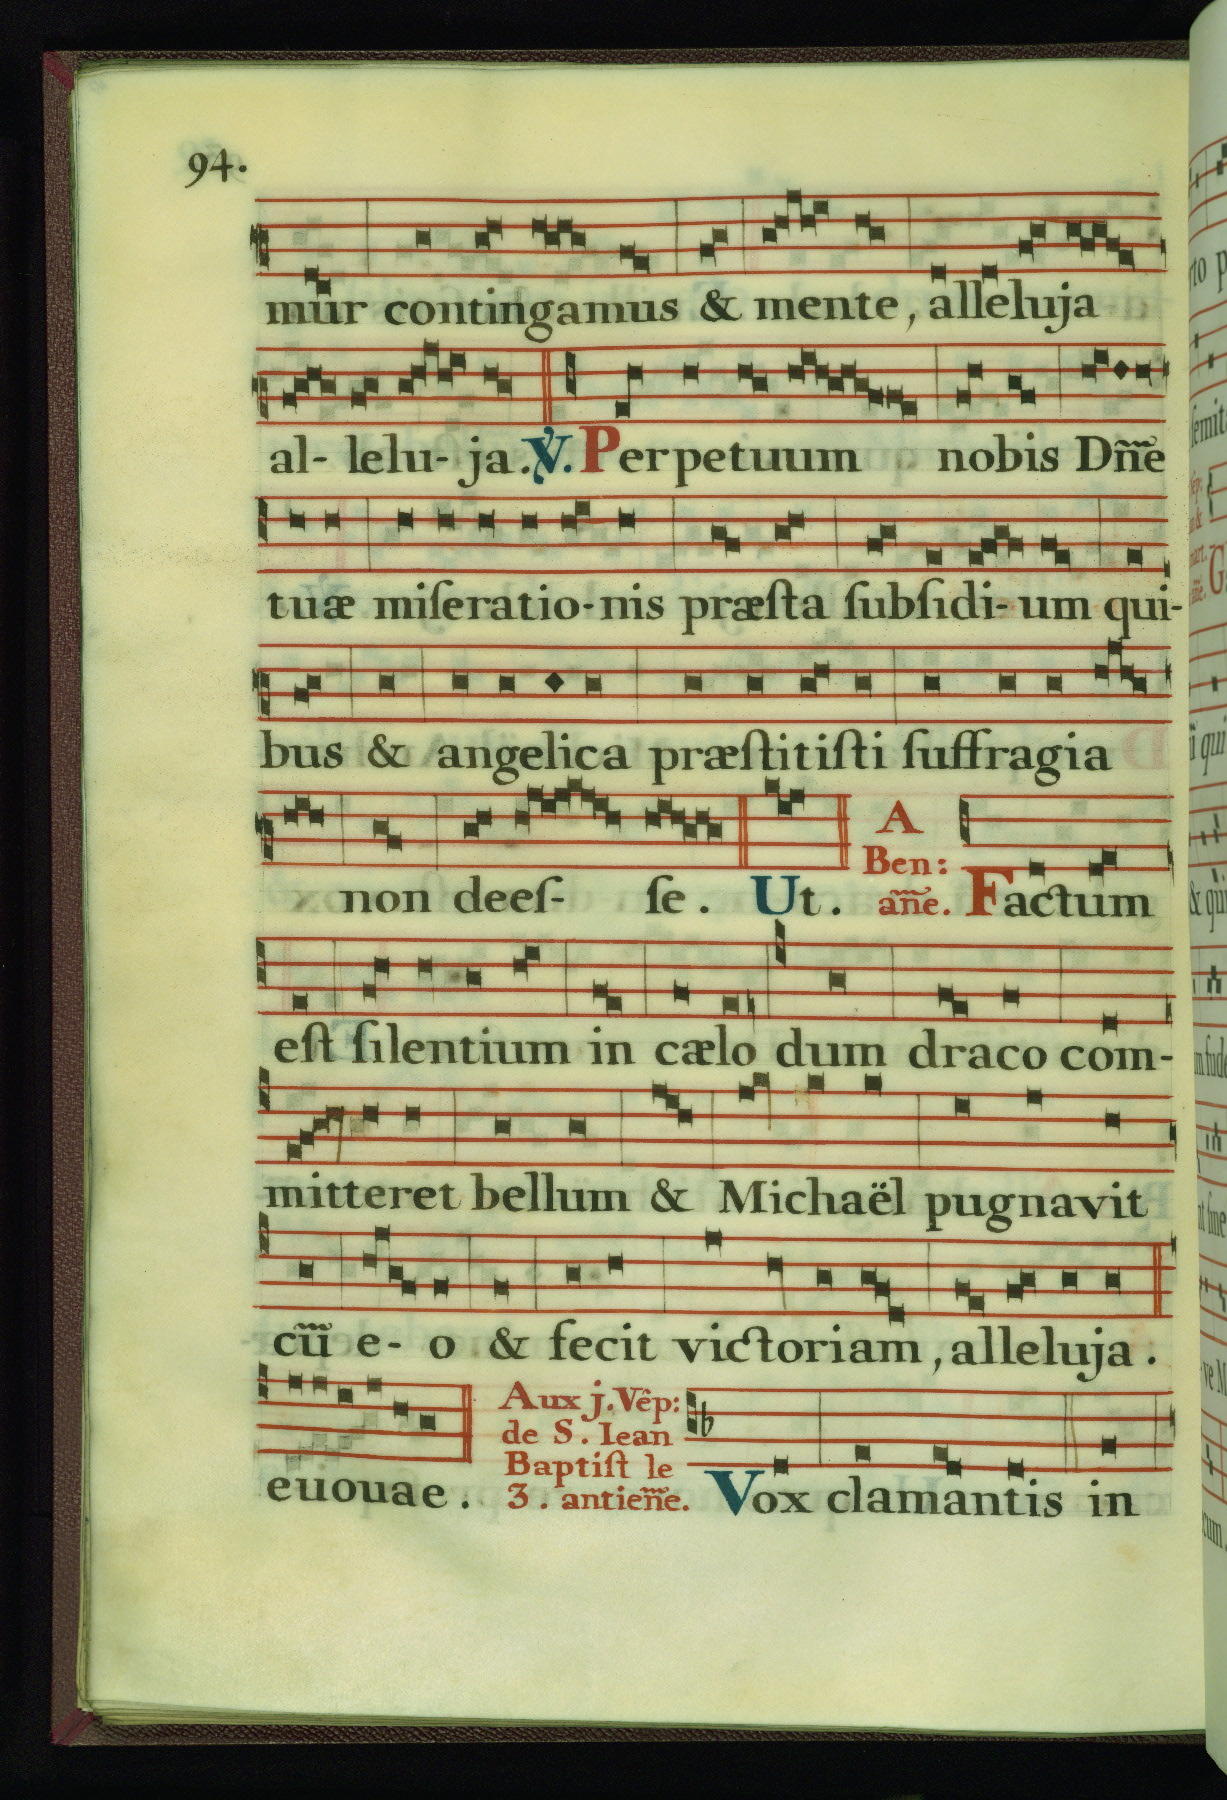 94.
mur contingamus & mente, alleluja
al- lelu- ja. ℣. Perpetuum nobis Dñe
tuæ miſeratio-nis præſta ſubſidi-um qui-
bus & angelica præſtitiſti ſuffragia
non deeſ- ſe. Ut. A Ben: añe. Factum
eſt ſilentium in cælo dum draco com-
mitteret bellum & Michaël pugnavit
cũ e- o & fecit victoriam, alleluja.
euouae. Aux j. Vêp: de S. Iean Baptiſt le 3. antieñe. Vox clamantis in